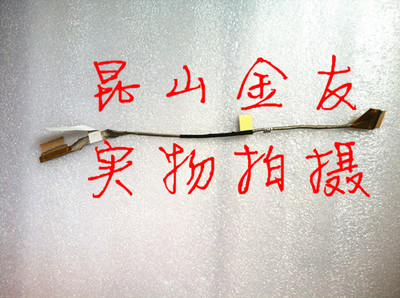 昆山金友
实物拍摄